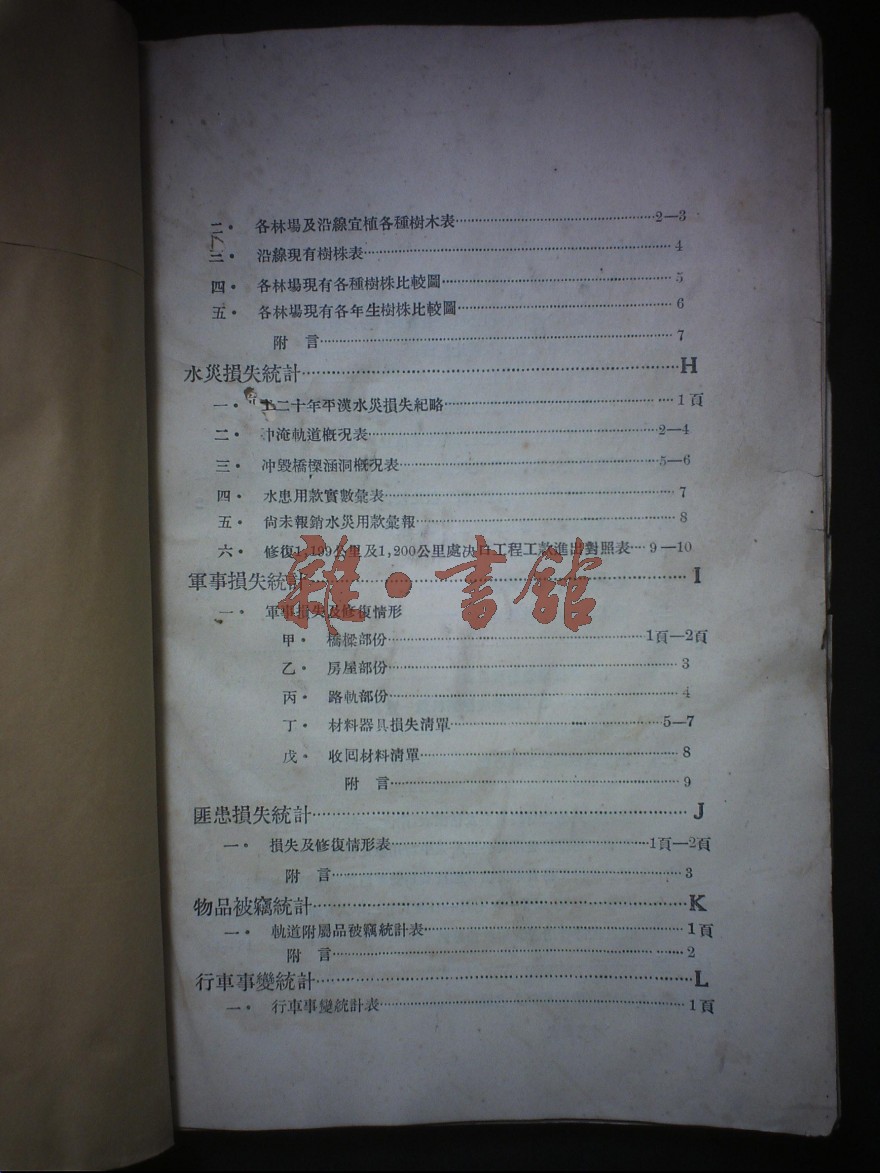 二・ 各林場及沿線宜植各種樹木表……2—3
三・ 沿線現有樹株表……4
四・ 各林場現有各種樹株比較圖……5
五・ 各林場現有各年生樹株比較圖……6
附言……7
水災損失統計……H
一・ 二十年平漢水災損失紀略……1頁
二・ 冲淹軌道概况表……2—4
三・ 冲毀橋樑涵洞概况表……5—6
四・ 水患用款實數彙表……7
五・ 尙未報銷水災用款彙報……8
六・ 修復1,199公里及1,200公里處決口工程工款進出對照表…9—10
軍事損失統計……I
雜・書館
一・ 軍事損失及修復情形
甲・ 橋樑部份……1頁—2頁
乙・ 房屋部份……3
丙・ 路軌部份……4
丁・ 材料器具損失淸單……5—7
戊・ 收囘材料淸單……8
附言……9
匪患損失統計……J
一・ 損失及修復情形表……1頁—2頁
附言……3
物品被竊統計……K
一・ 軌道附屬品被竊統計表……1頁
附言……2
行車事變統計……L
一・ 行車事變統計表……1頁